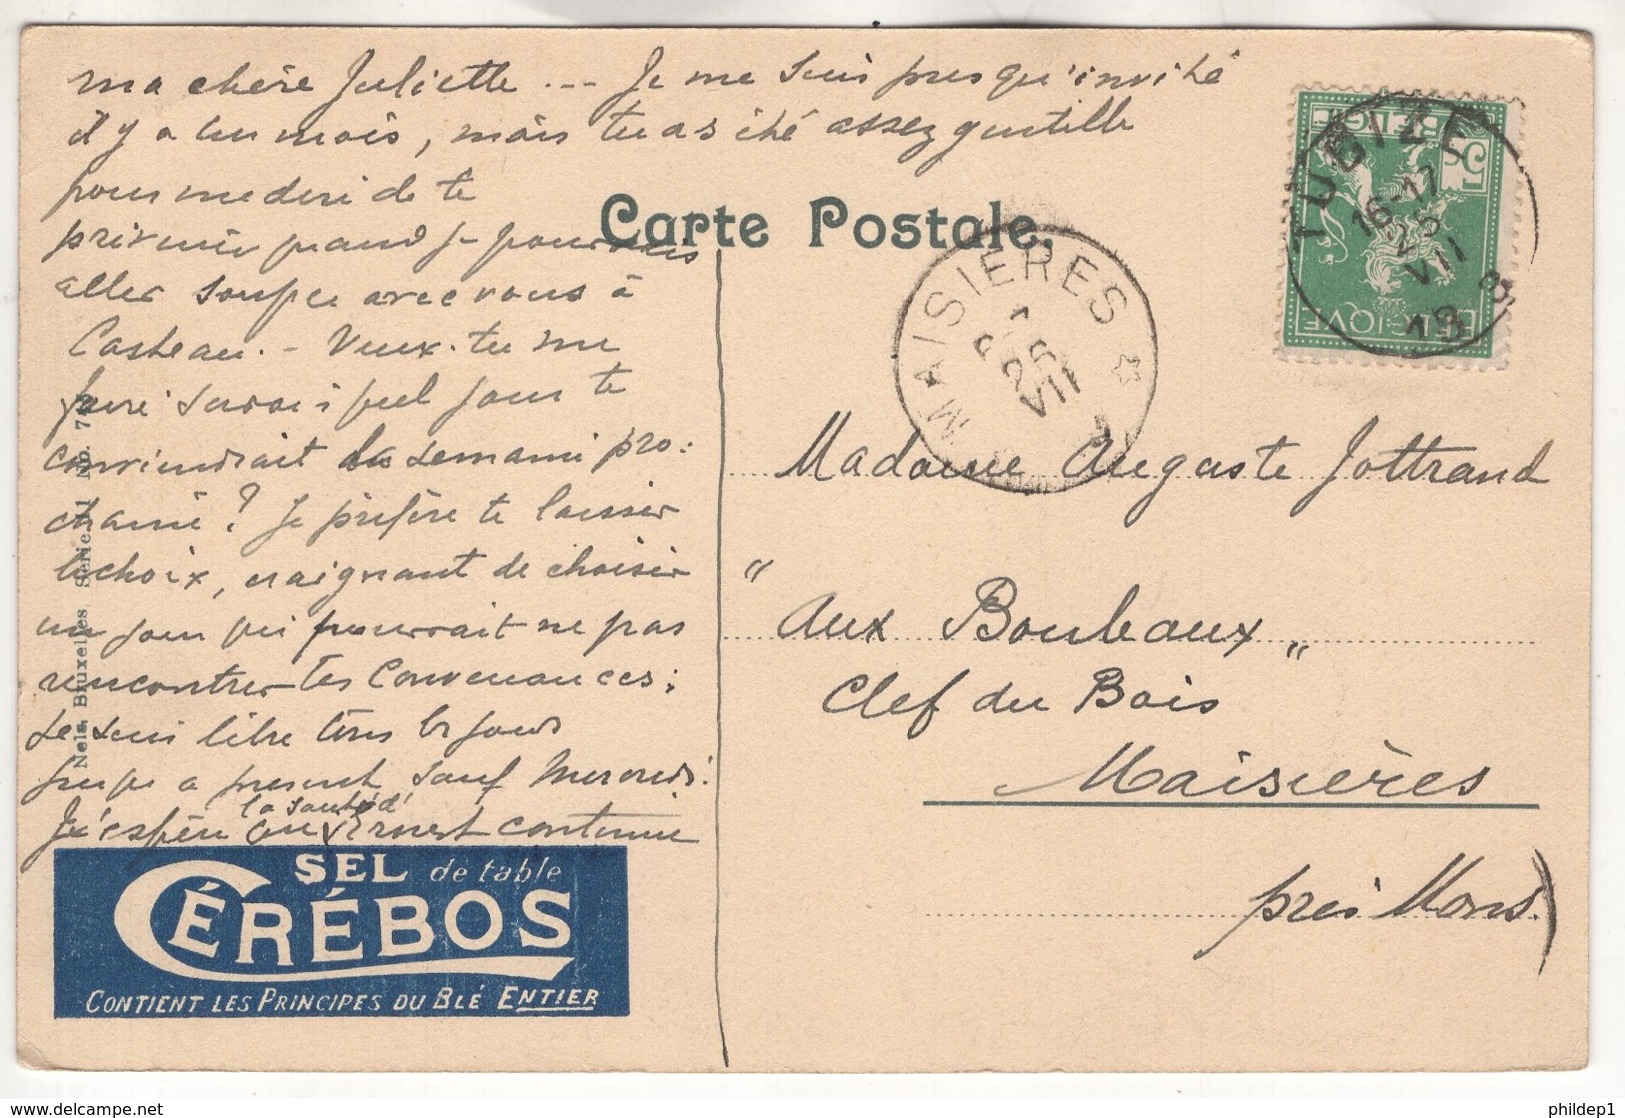 ma chère Juliette ... Je me suis presqu'invité
il y a un mois, mais tu as été assez gentille
pour me dire de te
prévenir quand je pourrais
aller souper avec vous à
Casteau. - Veux-tu me
faire savoir quel jour te
conviendrait la semaine pro:
chaine? Je préfère te laisser
le choix, craignant de choisir
un jour qui pourrait ne pas
rencontrer tes convenances;
Je suis libre tous les jours
jusqu'à présent sauf Mercredi.
la santé d'
J'espère que Ernest continue
Carte Postale.
TUBIZE
16-17
25
VII
BELGIE
5
BELGIQUE
MAISIERES
26
VII
Madame Auguste Jottrand
" Aux Bouleaux "
Clef du Bois
Maisières
près Mons.)
Nels, Bruxelles Série 11 No. 7
SEL de table
CÉRÉBOS
CONTIENT LES PRINCIPES DU BLÉ ENTIER
phildep1